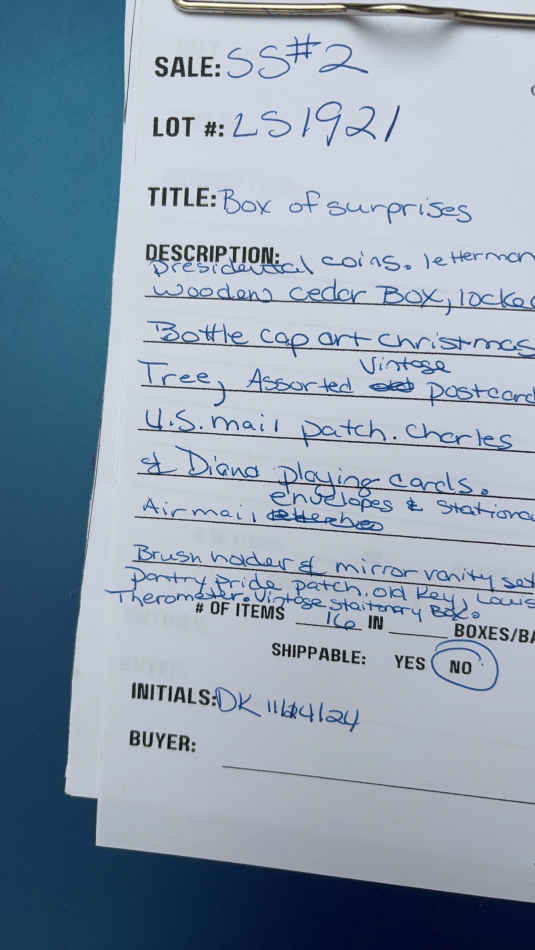 SALE: SS#2
LOT #: LS1921
TITLE: Box of surprises
DESCRIPTION:
presidential coins. letterman
wooden cedar Box, locked
Bottle cap art christmas
Vintage
Tree, Assorted postcard
U.S. mail patch. Charles
& Diana playing cards.
envelopes & stationa
Airmail
Brush holder & mirror vanity set
Pantry Pride patch. old key, Louis
Therometer. Vintage staitonary Box.
# OF ITEMS 16 IN BOXES/BA
SHIPPABLE: YES NO
INITIALS: DK 11/24/24
BUYER: